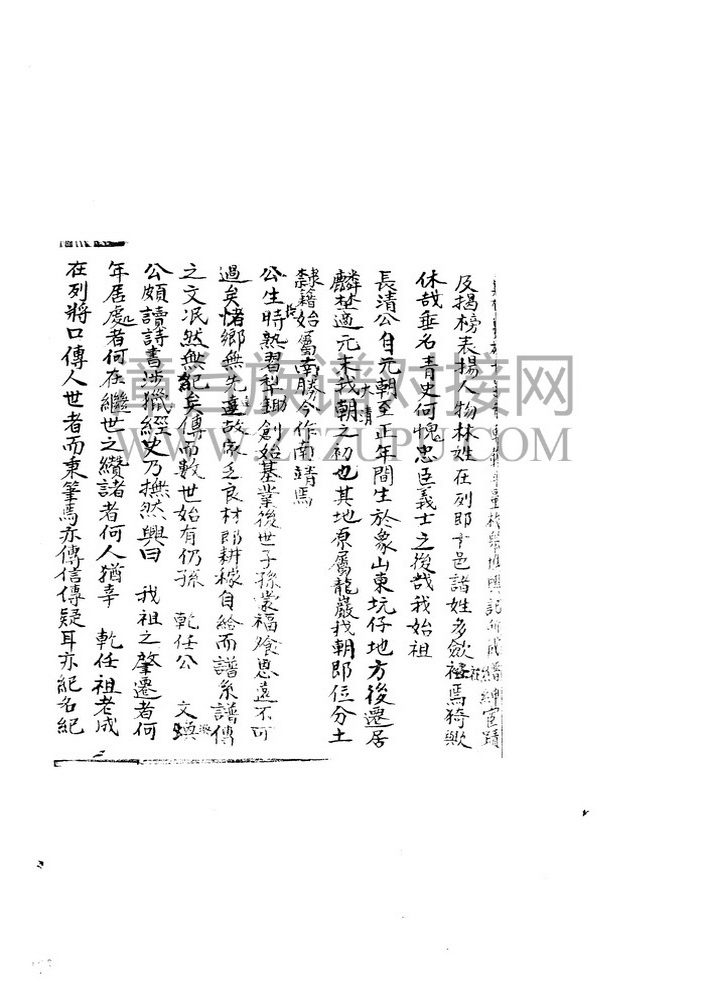 縉紳宦蹟
及揭榜表揚人物林姓在列即卞邑諸姓多歛衽焉猗歟
休哉垂名青史何愧忠臣義士之後哉我始祖
長清公自元朝至正年間生於象山東坑仔地方後遷居
麟埜適元末我朝之初也其地原屬龍巖我朝即位分土
大清
隸籍始屬南勝今作南靖焉
公生時熟習犁鋤創始基業後世子孫蒙福飡思遠不可
過矣惜鄉無先達故家乏良材即耕稼自給而譜系譜傳
之文泯然無紀矣傳而數世始有仍孫 乾任公 文
公頗讀詩書涉獵經史乃撫然興曰 我祖之肇遷者何
年居處者何在繼世之纘諸者何人猶幸 乾任祖老成
在列將口傳人世者而秉筆焉亦傳信傳疑耳亦紀名紀
章氏族谱对接网
WWW.ZJZUPU.COM